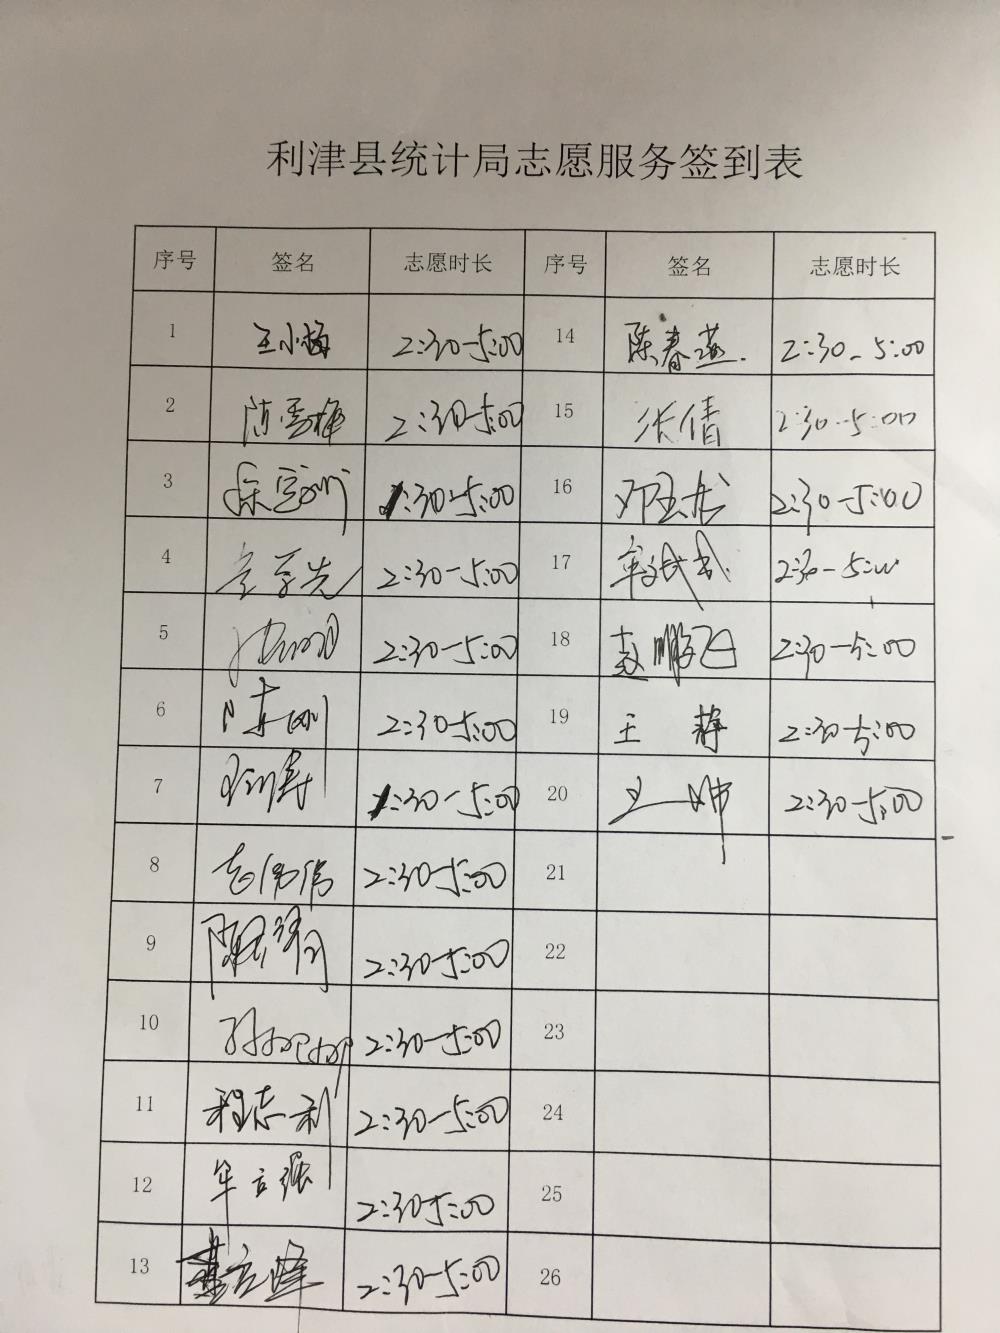 利津县统计局志愿服务签到表
序号 签名 志愿时长 序号 签名 志愿时长
1 王小梅 2:30-5:00 14 陈春燕. 2:30-5:00
2 陈雪梅 2:30-5:00 15 张倩 2:30-5:00
3 2:30-5:00 16 邓玉龙 2:30-5:00
4 2:30-5:00 17 2:30-5:00
5 2:30-5:00 18 赵鹏飞 2:30-5:00
6 陈刚 2:30-5:00 19 王静 2:30-5:00
7 2:30-5:00 20 王 2:30-5:00
8 2:30-5:00 21
9 2:30-5:00 22
10 孙娜娜 2:30-5:00 23
11 程志利 2:30-5:00 24
12 牟立强 2:30-5:00 25
13 2:30-5:00 26